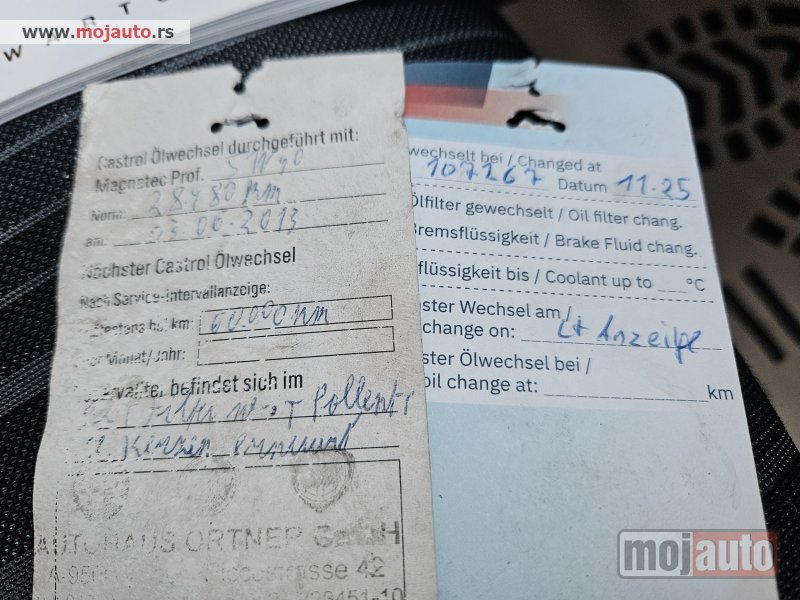 www.mojauto.rs
WARTU
Castrol Ölwechsel durchgeführt mit:
Magnatec Prof. 5W40
28480 km
am: 03.06.2013
Nächster Castrol Ölwechsel
Nach Service-Intervallanzeige:
km: 60.000 km
Monat/Jahr:
befindet sich im
Filter Pollenf
Kerzen
AUTOHAUS ORTNER GmbH
A-950 42
28451-10
wechselt bei / Changed at
107267 Datum 11.25
Ölfilter gewechselt / Oil filter chang.
Bremsflüssigkeit / Brake Fluid chang.
flüssigkeit bis / Coolant up to °C
ster Wechsel am /
change on: Lt Anzeige
ster Ölwechsel bei /
oil change at: km
mojauto